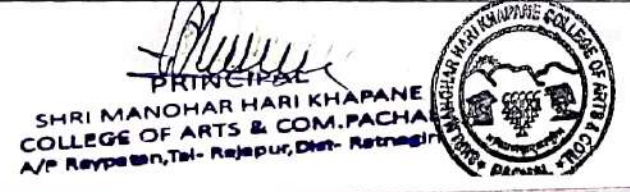 PRINCIPAL
SHRI MANOHAR HARI KHAPANE
COLLEGE OF ARTS & COM.PACHAL
A/P Raypatan,Tal- Rajapur,Dist- Ratnagiri
SHRI MANOHAR HARI KHAPANE COLLEGE OF ARTS & COM.
PACHAL